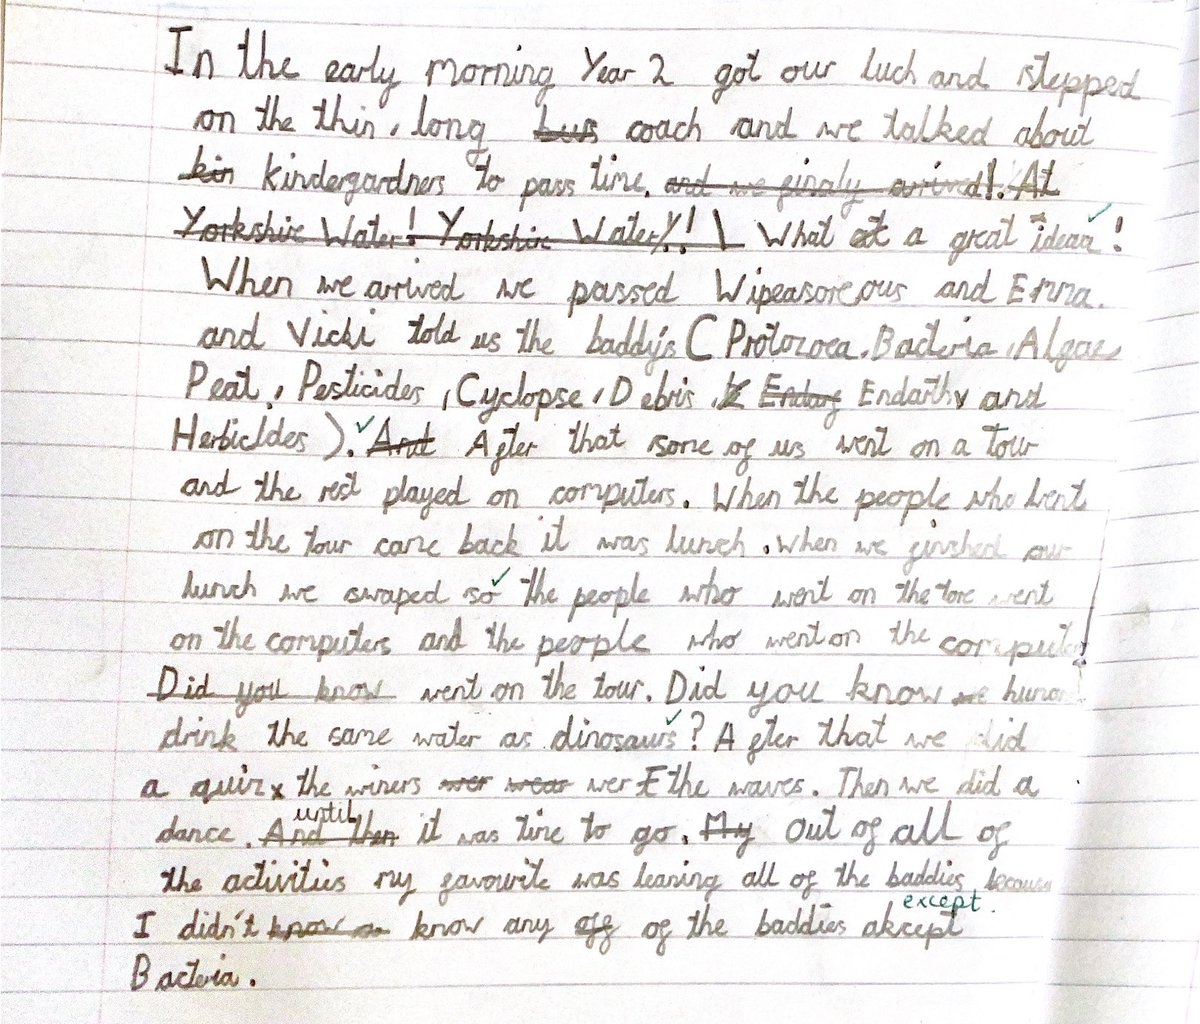 In the early morning Year 2 got our luch and stepped
on the thin, long bus coach and we talked about
kin kindergardners to pass time. and we finaly arrived!. At
Yorkshire Water! Yorkshire Water! What at a great idea!
When we arrived we passed Wipeasoreous and Emma.
and Vicki told us the baddy's ( Protozoea, Bacteria, Algae
Peat, Pesticides, Cyclopse, Debris, Endary Endarthy and
Herbicldes ). And After that some of us went on a tour
and the rest played on computers. When the people who went
on the tour came back it was lunch. When we finshed our
lunch we swaped so the people who went on the tore went
on the computers and the people who went on the computers
Did you know went on the tour. Did you know we human
drink the same water as dinosaurs? After that we did
a quiz the winers wer wear wer the waves. Then we did a
until
dance. And then it was time to go. My Out of all of
the activities my favourite was leaning all of the baddies because
except.
I didn't know know any off of the baddies akcept
Bacteria.